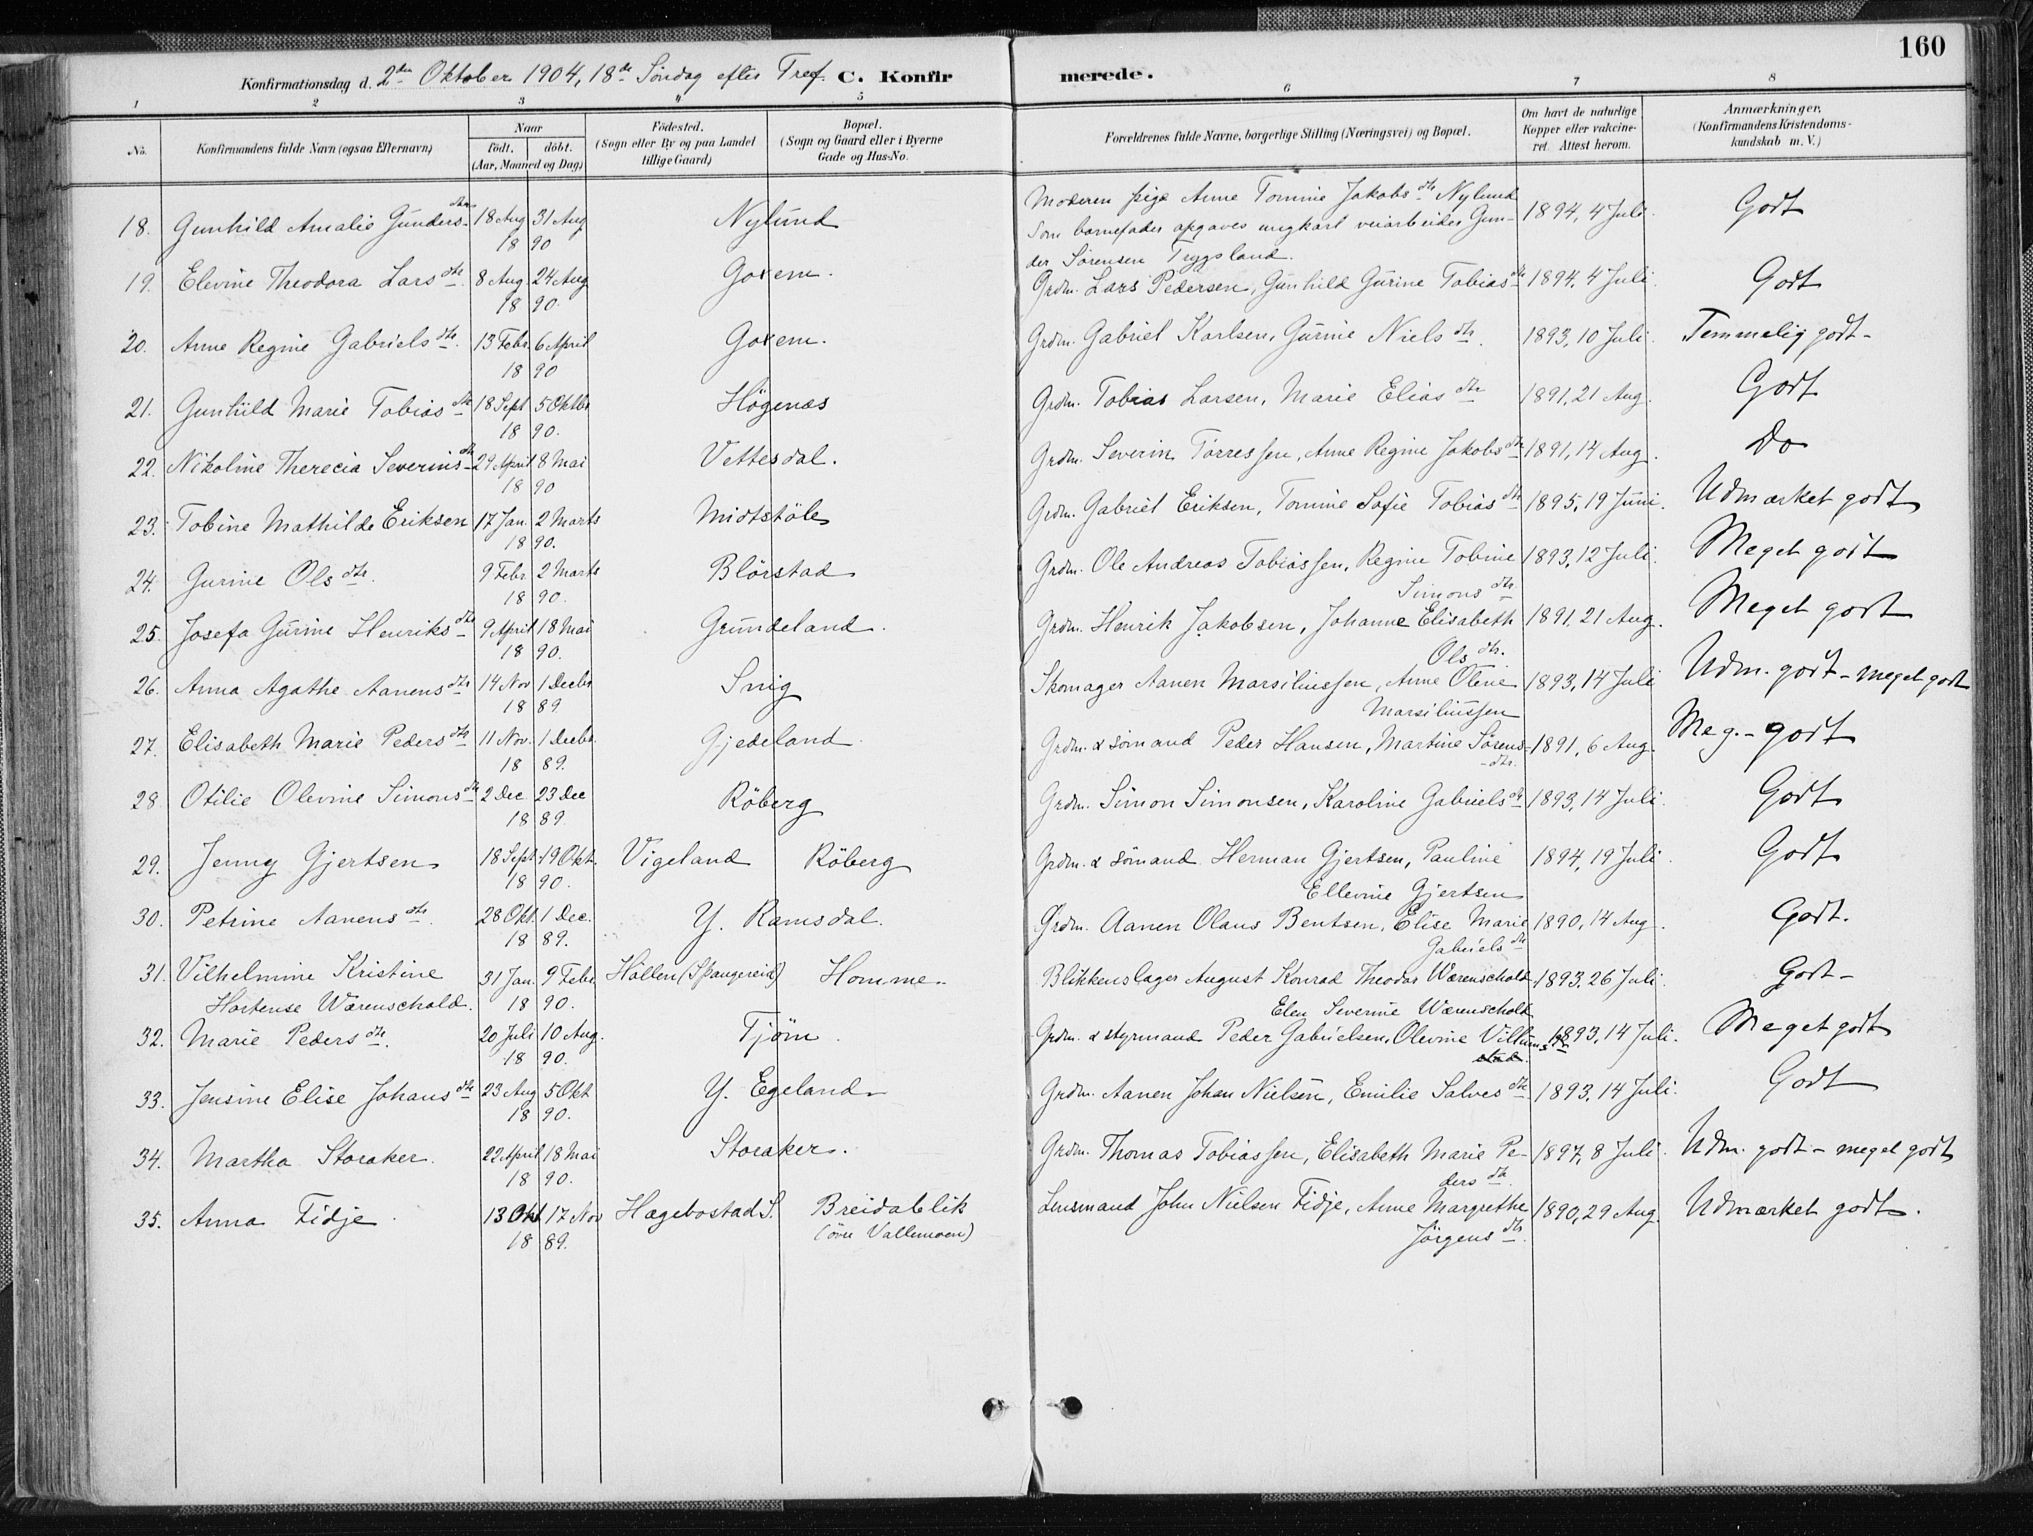 160
Konfirmationsdag d. 2den Oktober 1904, 18de Søndag efter Tref. C. Konfirmerede.
1 2 3 4 5 6 7 8
No. Konfirmandens fulde Navn (ogsaa Efternavn) Naar født. døbt. (Aar, Maaned og Dag) Fødested. (Sogn eller By og paa Landet tillige Gaard) Bopæl. (Sogn og Gaard eller i Byerne Gade og Hus-No. Forældrenes fulde Navne, borgerlige Stilling (Næringsvei) og Bopæl. Om havt de naturlige Kopper eller vakcineret. Attest herom. Anmærkninger. (Konfirmandens Kristendomskundskab m. V.)
18. Gunhild Amalie Gundersdtr 18 Aug 31 Aug 1890 Nylund Moderen pige Anne Tomine Jakobsdtr Nylund
Som barnefader opgaves ungkarl veiarbeider Gun-
der Sørensen Trygsland. 1894, 4 Juli. Godt
19. Elevine Theodora Larsdtr. 8 Aug. 24 Aug 1890. Goxem. Grdm. Lars Pedersen, Gunhild Gurine Tobiasdtr 1894, 4 Juli. Godt
20. Anne Regine Gabrielsdtr. 13 Febr. 6 April 1890 Goxem. Grdm. Gabriel Karlsen, Gurine Nielsdtr. 1893, 10 Juli. Temmelig godt-
21. Gunhild Marie Tobiasdtr 18 Sept 5 Oktbr 1890. Högenæs Grdm. Tobias Larsen, Marie Eliasdtr 1891, 21 Aug. Godt
22. Nikoline Therecia Severinsdtr 29 April 8 Mai 1890 Vettesdal. Grdm. Severin Tørressen, Anne Regine Jakobsdtr 1891, 14 Aug. Do
23. Tobine Mathilde Eriksen 17 Jan. 2 Marts 1890. Midtstöle Grdm. Gabriel Eriksen, Tomine Sofie Tobiasdtr 1895, 19 Juni. Udmærket godt
24. Gurine Olsdtr. 9 Febr 2 Marts 1890. Blörstad Grdm. Ole Andreas Tobiassen, Regine Tobine
Simonsdtr 1893, 12 Juli. Meget godt
25. Josefa Gurine Henriksdtr 9 April 18 Mai 1890. Grundeland. Grdm. Henrik Jakobsen, Johanne Elisabeth
Olsdtr. 1891, 21 Aug. Meget godt
26. Anna Agathe Aanensdtr 14 Nov 1 Decbr 1889 Snig Skomager Aanen Marsiliussen, Anne Oline
Marsiliussen 1893, 14 Juli Udm. godt - meget godt
27. Elisabeth Marie Pedersdtr 11 Nov. 1 Decbr. 1889. Gjedeland. Grdm. & sømand Peder Hansen, Martine Sørens-
dtr. 1891, 6 Aug. Meg.- godt
28. Otilie Olevine Simonsdtr 2 Dec 23 Dec 1889. Röberg Grdm. Simon Simonsen, Karoline Gabrielsdtr 1893, 14 Juli. Godt
29. Jenny Gjertsen 18 Sept. 19 Okt. 1890. Vigeland Röberg Grdm. & sømand. Herman Gjertsen, Pauline
Ellevine Gjertsen 1894, 19 Juli. Godt
30. Petrine Aanensdtr. 28 Okt. 1 Dec. 1889. Y. Ramsdal. Grdm. Aanen Olaus Bentsen, Elise Marie
Gabrielsdtr 1890, 14 Aug. Godt.
31. Vilhelmine Kristine
Hortense Wærenschold. 31 Jan. 9 Febr 1890. Höllen (Spangereid) Homme. Blikkenslager August Konrad Theodor Wærenschold,
Elen Severine Wærenschold 1893, 26 Juli. Godt-
32. Marie Pedersdtr. 20 Juli 10 Aug. 1890. Tjöm. Grdm. & styrmand Peder Gabrielsen, Olevine Villumsdtr 1893, 14 Juli. Meget godt
33. Jensine Elise Johansdtr 23 Aug 5 Okt 1890. Y. Egeland. Grdm. Aanen Johan Nielsen, Emilie Salvesdtr 1893, 14 Juli. Godt
34. Martha Storaker. 22 April 18 Mai 1890. Storaker. Grdm. Thomas Tobiassen, Elisabeth Marie Pe-
dersdtr. 1897, 8 Juli. Udm. godt - meget godt
35. Anna Fidje. 13 Okt 17 Nov 1889. Hægebostad S. Breidablik
(øvre Vallemoen) Lensmand John Nielsen Fidje, Anne Margrethe
Jörgensdtr. 1890, 29 Aug. Udmærket godt.